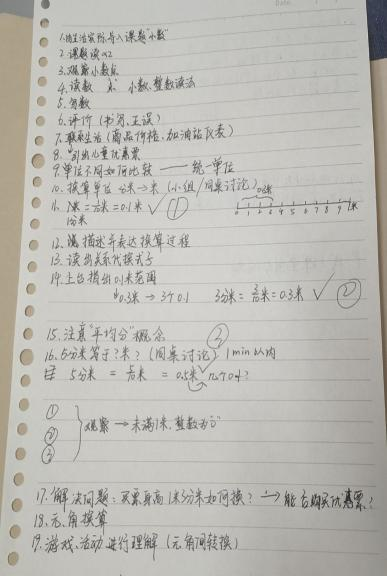 1.由生活实际导入课题"小数"
2.课题读x2
3.观察小数点
4.读数 小数、整数读法
5.写数
6.评价(书写、正误)
7.联系生活(商品价格、加油站仪表)
8.引出儿童优惠票
9.单位不同如何比较 —— 统一单位
10.换算单位 分米→米 (小组/同桌讨论)
11. 1分米 = 1/10米 = 0.1米 ✓ ①
0 1 2 3 4 5 6 7 8 9 1米
12. 描述并表达换算过程
13. 读出关系代换式子
14. 上台指出0.1米范围
0.3米 → 3个0.1 3分米 = 3/10米 = 0.3米 ✓ ②
15. 注意"平均分"概念 ③
16. 5分米等于?米?(同桌讨论) 1min以内
5分米 = 5/10米 = 0.5米 ✓ 几个0.1?
①
② 观察 → 未满1米,整数为"0"
③
17.解决问题:买票身高1米3分米如何换? → 能否购买优惠票?
18.元、角换算
19.游戏、活动进行理解(元角间转换)